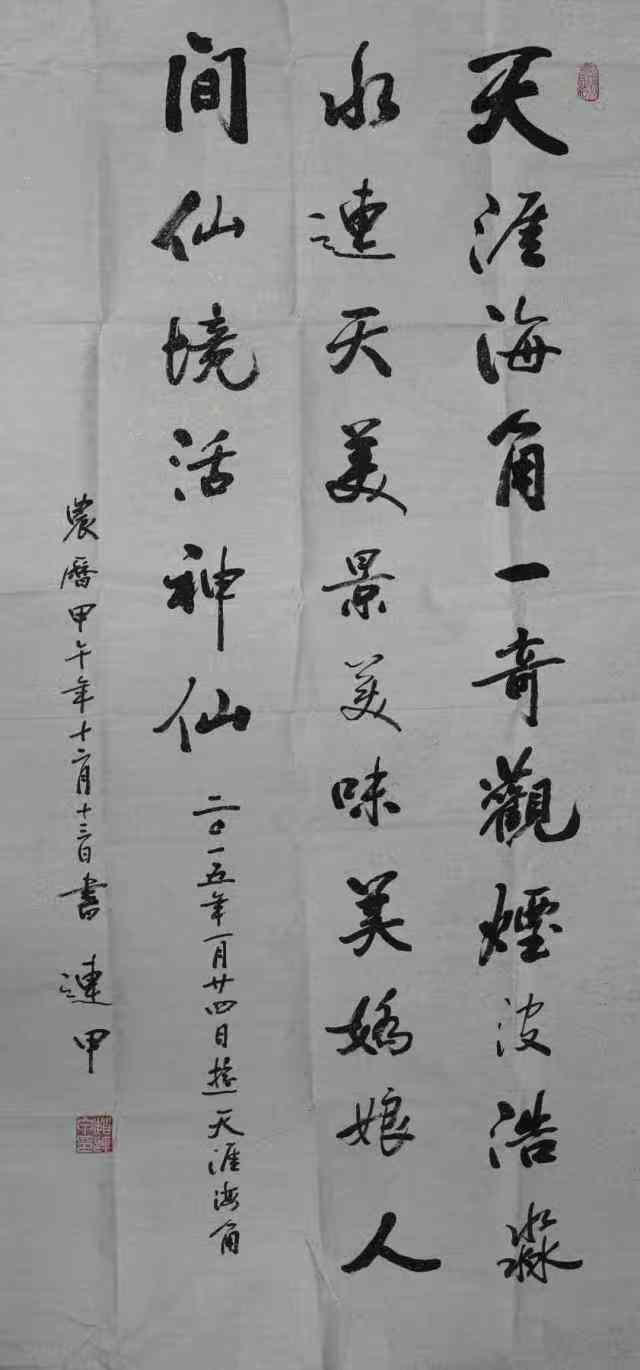 天涯海角一奇觀煙波浩淼
水連天美景美味美嬌娘人
間仙境活神仙
二〇一五年一月廿四日遊天涯海角
農曆甲午年十二月十三日書 連甲